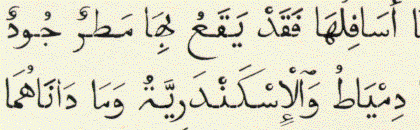 أَسَافِلُهَا فَقَدْ يَقَعُ بِهَا مَطَرٌ جُودٌ
دِمْيَاطُ وَٱلْإِسْكَنْدَرِيَّةُ وَمَا دَانَاهُمَا